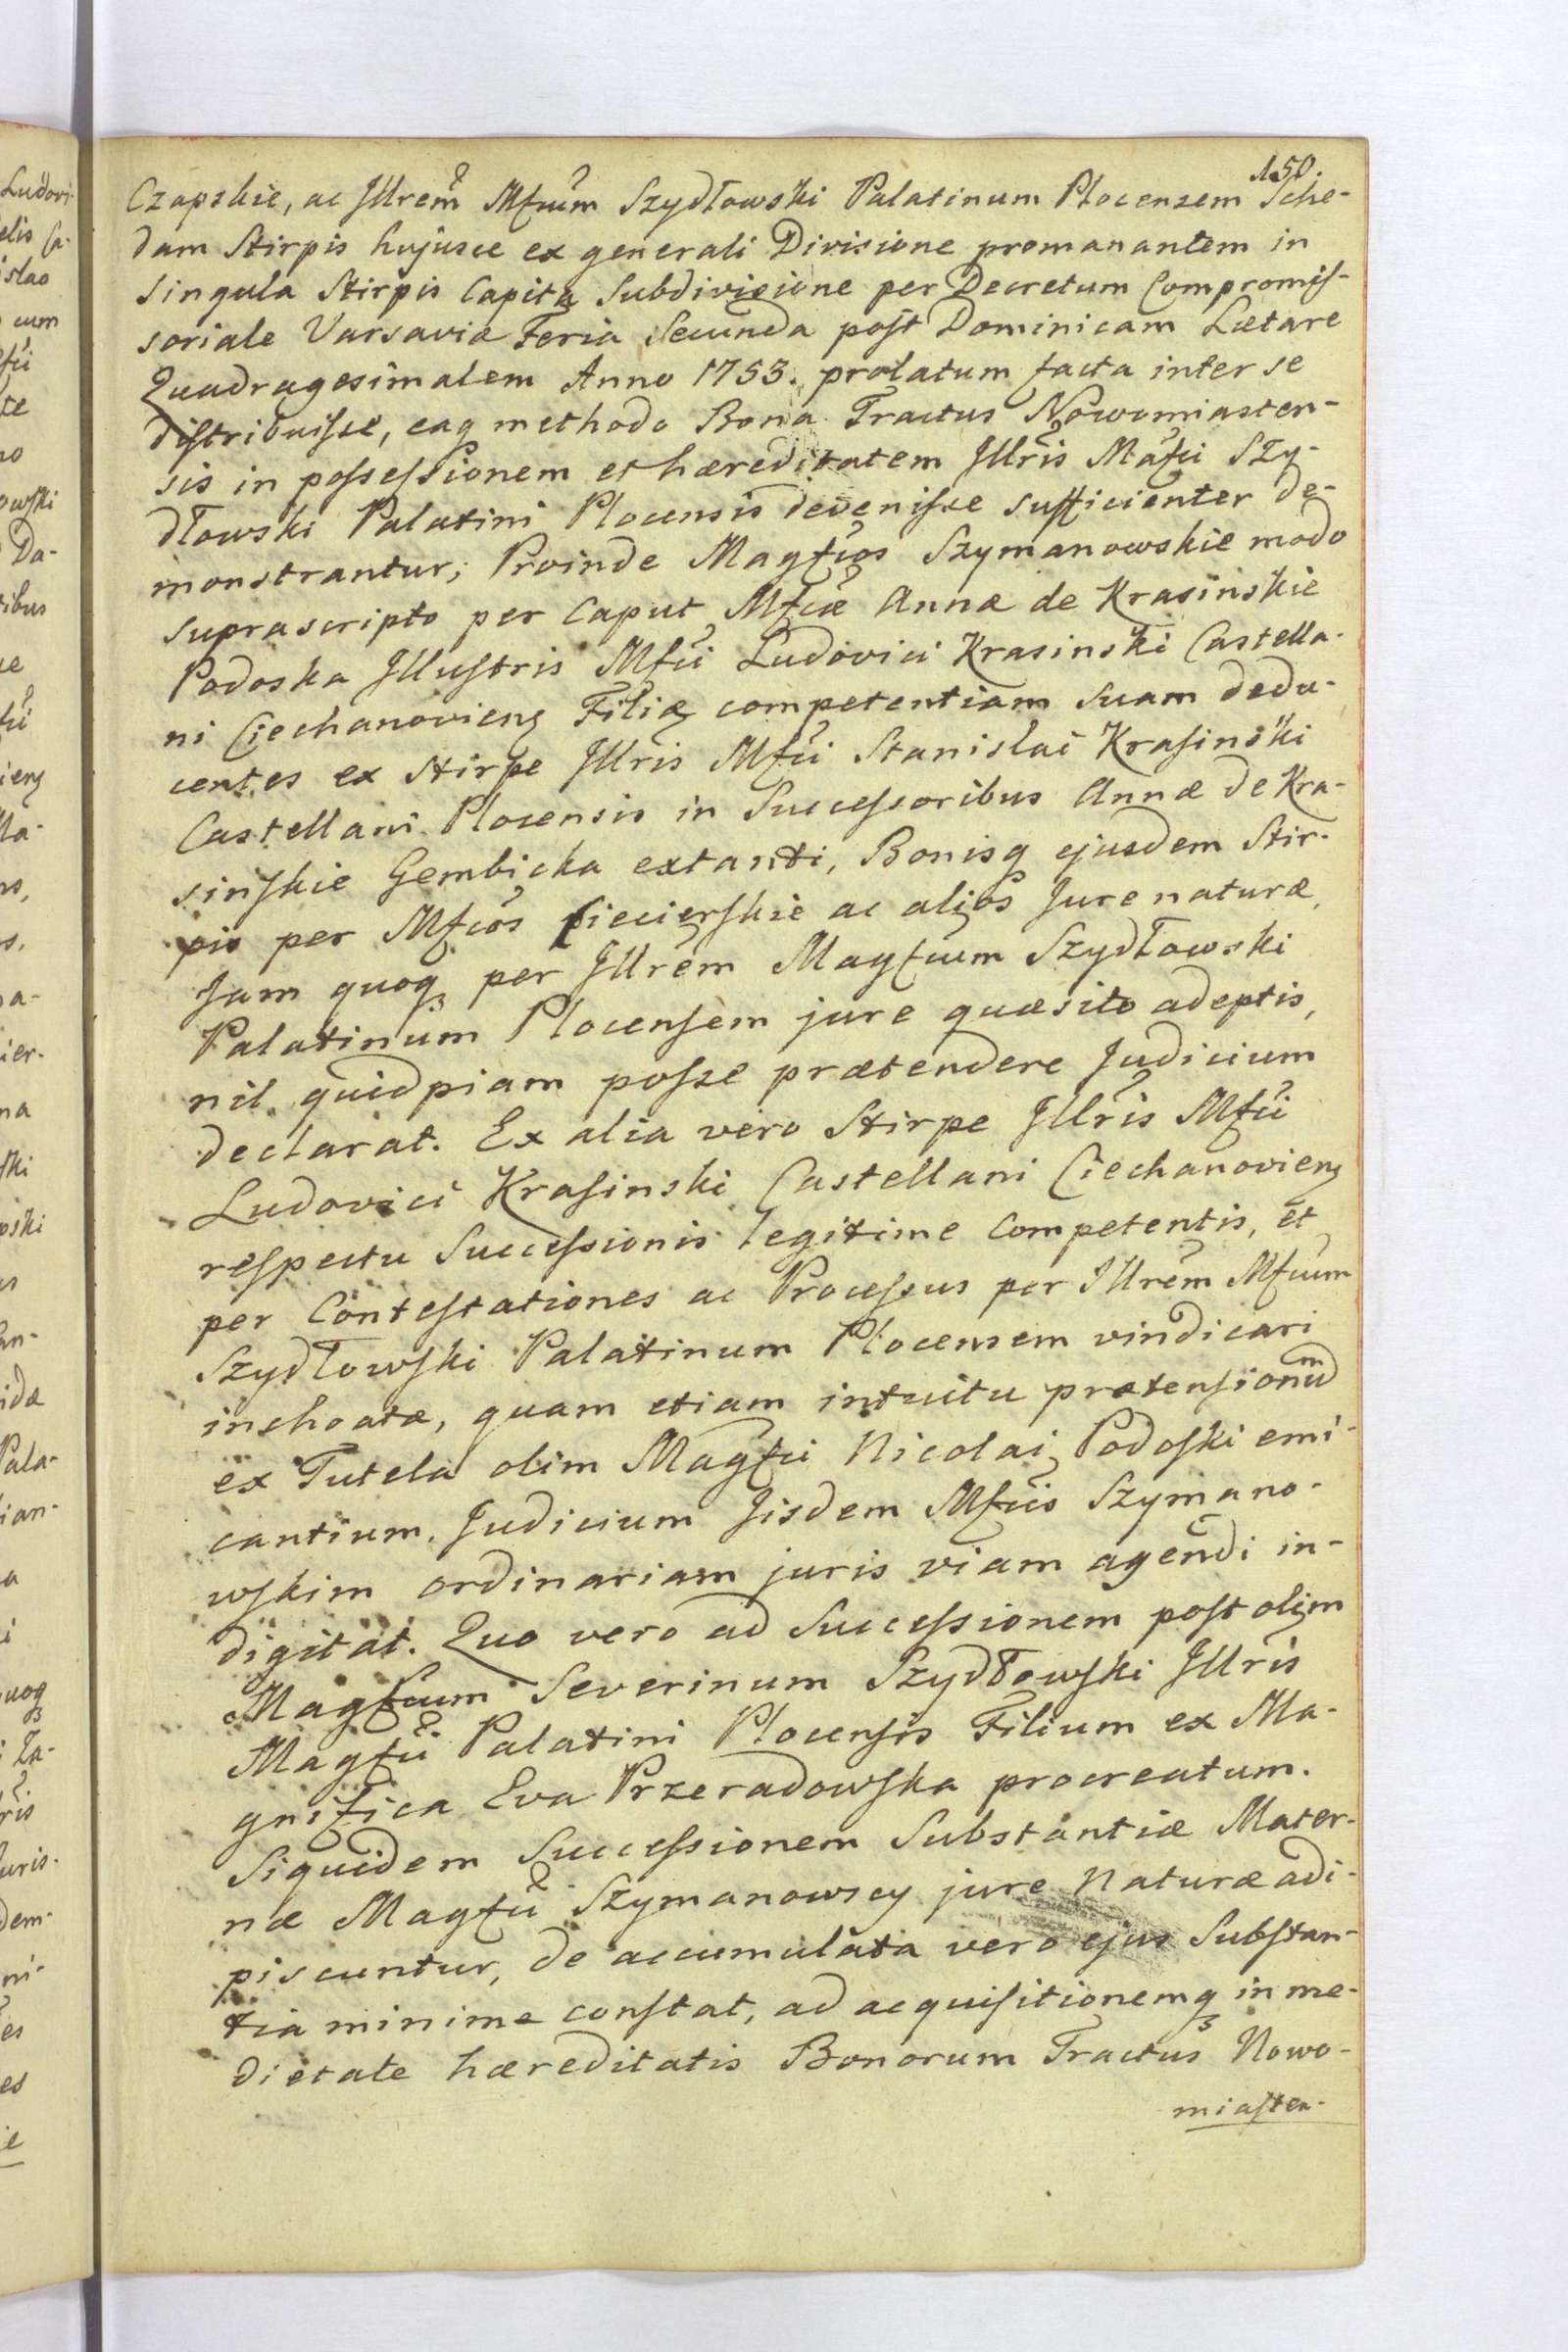 150.
Czapskie, ac Jllrem Mfcum Szydłowski Palatinum Plocensem Sche-
dam Stirpis hujusce ex generali Divisione promanantem in
singula Stirpis Capita Subdivisione per Decretum Compromis-
soriale Varsaviæ Feria Secunda post Dominicam Lætare
Quadragesimalem Anno 1753. prolatum facta inter se
distribuisse, eaq methodo Bona Tractus Nowomiasten-
sis in possessionem et hæreditatem Jllris Mafci Szy-
dłowski Palatini Plocensis devenisse sufficienter de-
monstrantur; Proinde Magfcos Szymanowskie modo
suprascripto per Caput Mfcæ Annæ de Krasinskie
Podoska Jllustris Mfci Ludovici Krasinski Castella-
ni Ciechanovienς Filiæ competentiam suam dedu-
centes ex Stirpe Jllris Mfci Stanislai Krasinski
Castellani Plocensis in Successoribus Annæ de Kra-
sinskie Gembicka extanti, Bonisq ejusdem Stir-
pis per Mfcos Ciecierskie ac alios Jure naturæ,
Jam quoqꝫ per Jllrem Magfcum Szydłowski
Palatinum Plocensem jure quæsito adeptis,
nil quidpiam posse prætendere Judicium
declarat. Ex alia vero Stirpe Jllris Mfci
Ludovici Krasinski Castellani Ciechanovienς
respectu Successionis legitime competentis, et
per Contestationes ac Processus per Jllrem Mfcum
Szydłowski Palatinum Plocensem vindicari
inchoatæ, quam etiam intuitu prætensionum
ex Tutela olim Magfci Nicolai Podoski emi-
cantium, Judicium Jisdem Mfcis Szymano-
wskim ordinariam juris viam agendi in-
digitat. Quo vero ad Successionem post olim
Magfcum Severinum Szydłowski Jllris
Magfci Palatini Plocensis Filium ex Ma-
gnifica Eva Przeradowska procreatum.
Siquidem Successionem Substantiæ Mater-
næ Magfci Szymanowscy jure Naturæ adi-
piscuntur, de accumulata vero ejus Substan-
tia minime constat, ad acquisitionemqꝫ in me-
dietate hæreditatis Bonorum Tractus Nowo-
miasten-